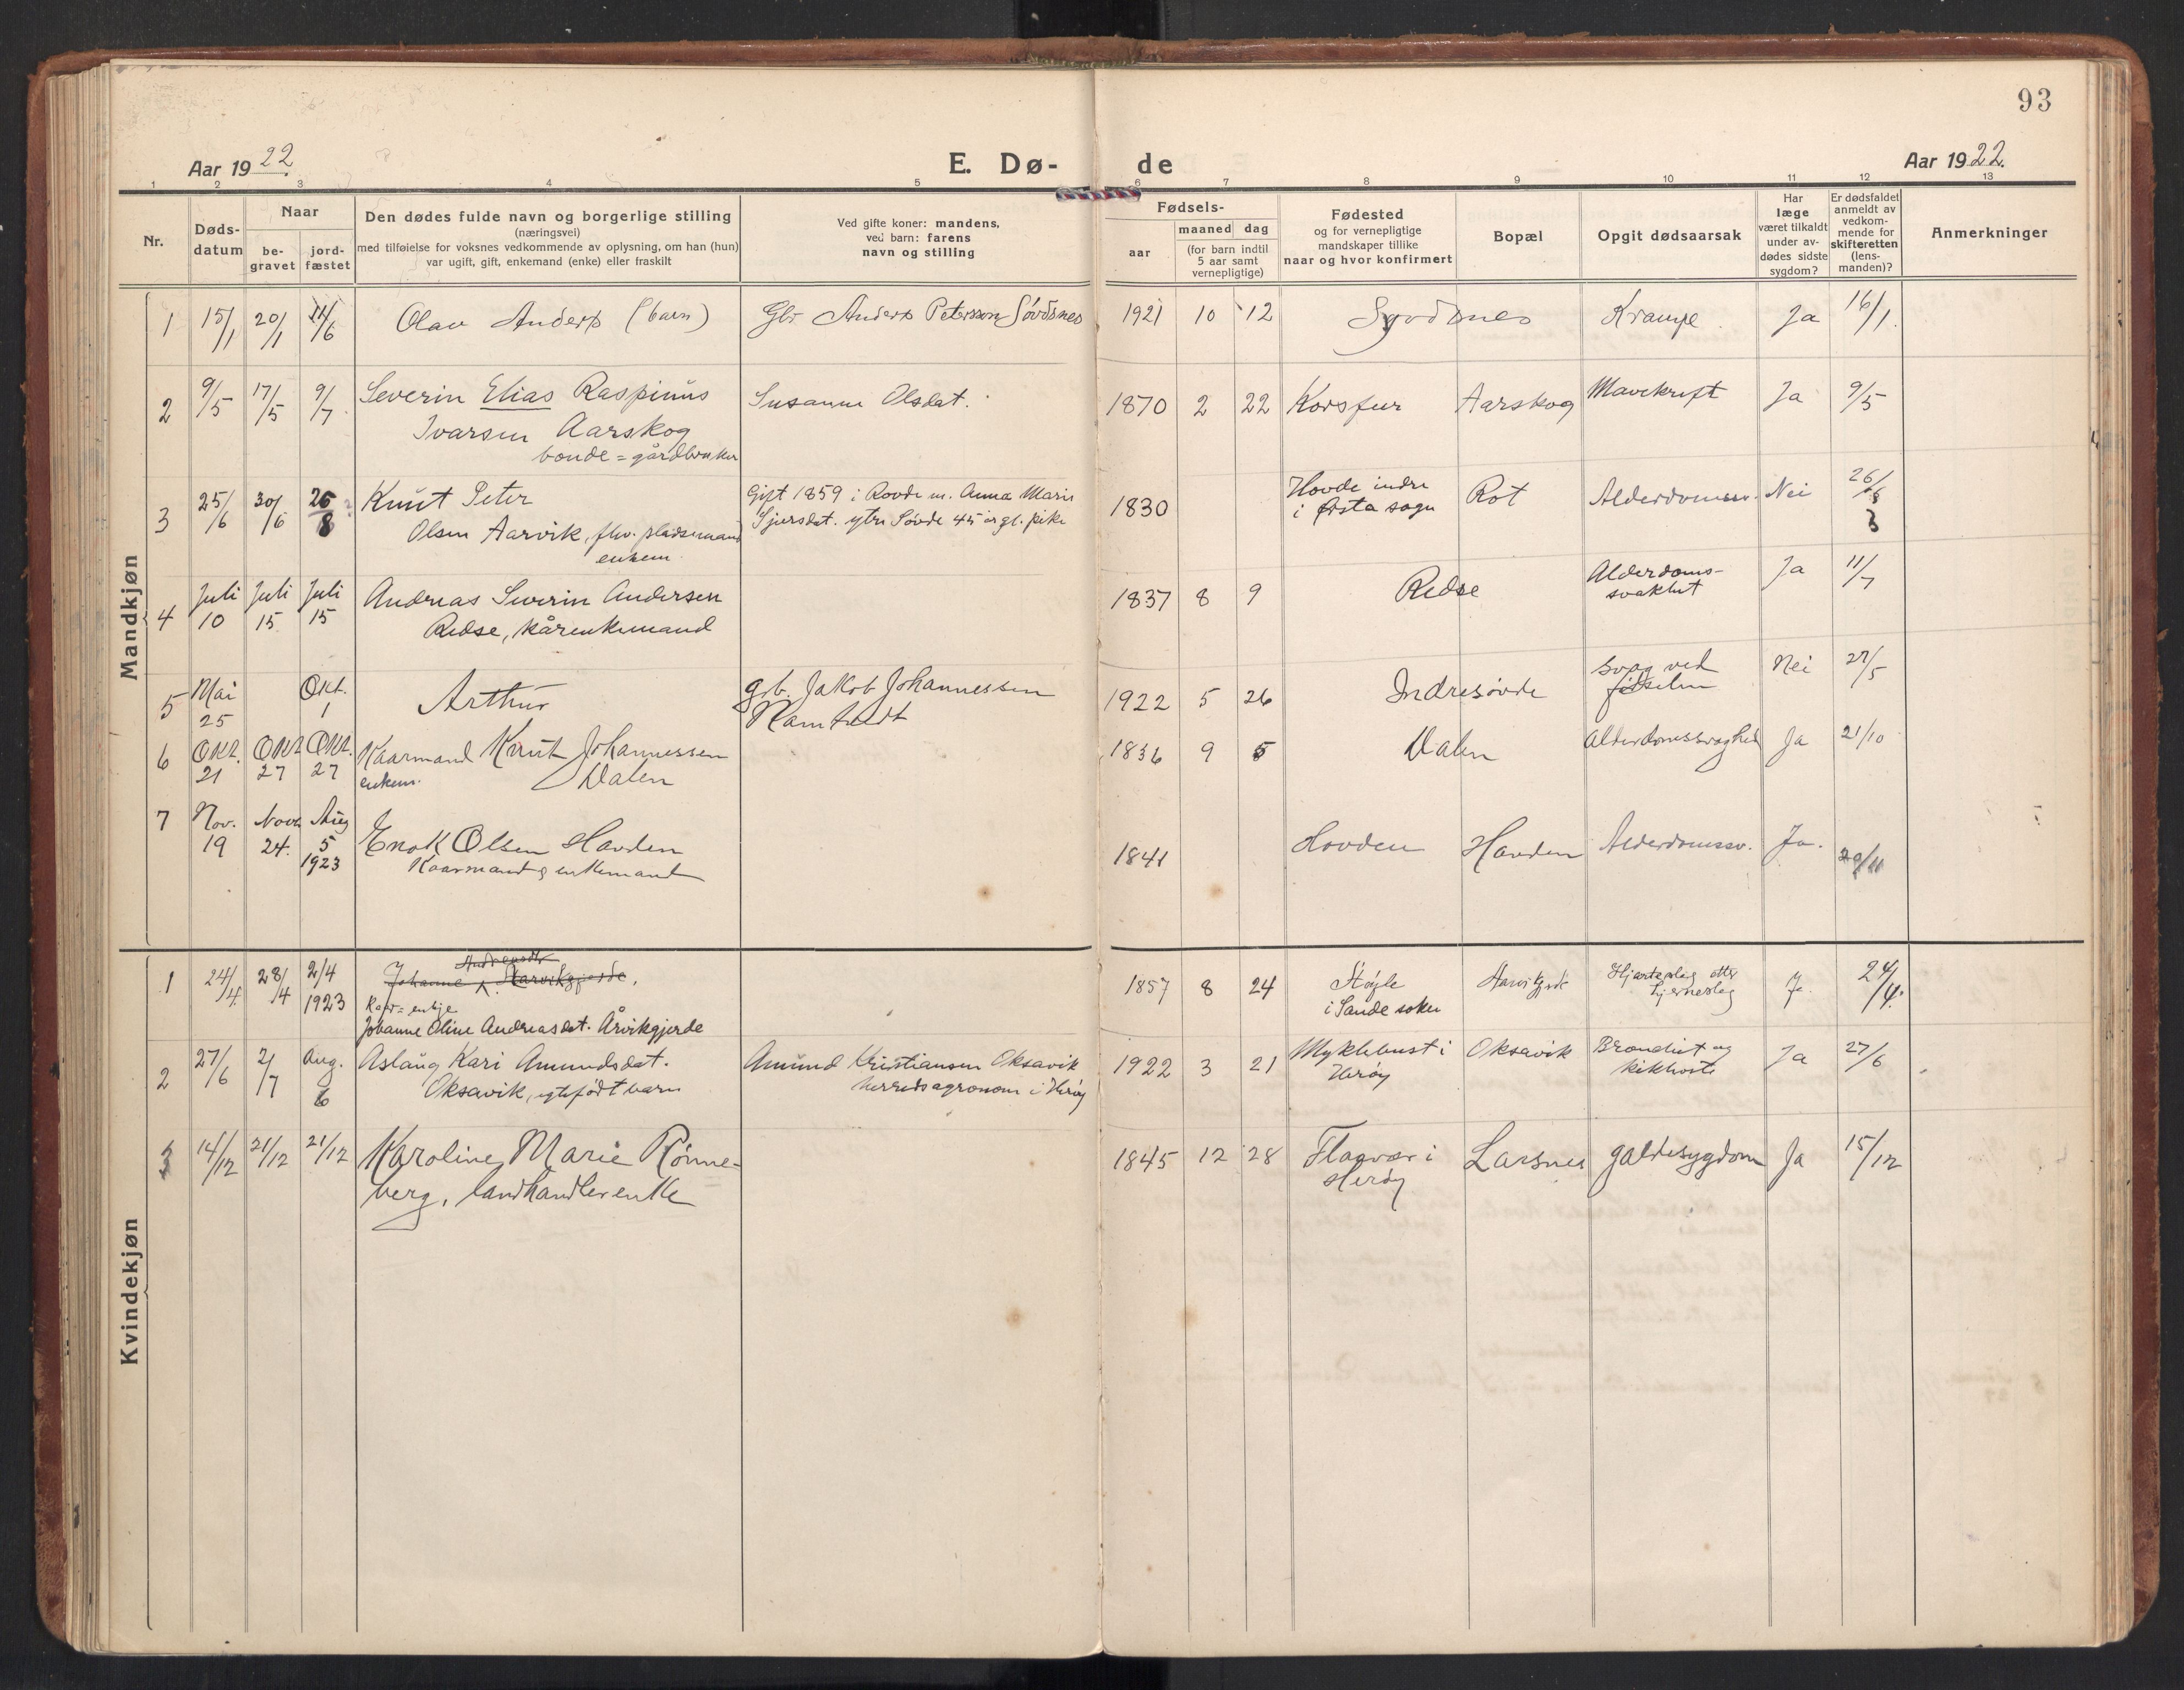 93
Aar 1922.
E. Dø-
de
Aar 1922.
1 2 3 4 5 6 7 8 9 10 11 12 13
Nr.
Døds-
datum
Naar
be-
gravet
jord-
fæstet
Den dødes fulde navn og borgerlige stilling
(næringsvei)
med tilføielse for voksnes vedkommende av oplysning, om han (hun)
var ugift, gift, enkemand (enke) eller fraskilt
Ved gifte koner: mandens,
ved barn: farens
navn og stilling
Fødsels-
aar
maaned dag
(for barn indtil
5 aar samt
vernepligtige)
Fødested
og for vernepligtige
mandskaper tillike
naar og hvor konfirmert
Bopæl
Opgit dødsaarsak
Har
læge
været tilkaldt
under av-
dødes sidste
sygdom?
Er dødsfaldet
anmeldt av
vedkom-
mende for
skifteretten
(lens-
manden)?
Anmerkninger
Mandkjøn
1 15/1 20/1 11/6 Olav Anders (barn) Gbr Anders Petersson Søvdsnes 1921 10 12 Søvdsnes Krampe Ja 16/1
2 9/5 17/5 9/7 Severin Elias Raspinus Susanne Olsdat. 1870 2 22 Korsfur Aarskog Mavekreft Ja 9/5
Ivarsen Aarskog
bonde = gårdbruker
3 25/6 30/6 26/8 Knut Peter Gift 1859 i Rovde m. Anna Marie 1830 Hovde indre Rot Alderdomssv. Nei 26/8
Olsen Aarvik, fhv. pladsemand Sjursdat. ytre Søvde 45 år gl. pike i Ørsta sogn
enkem.
4 Juli 10 Juli 15 Juli 15 Andreas Severin Andersen 1837 8 9 Redse Alderdoms- Ja 11/7
Redse, kårenkemand svakhet
5 Mai 25 Okt. 1 Arthur grb. Jakob Johannessen 1922 5 26 Indresøvde svag ved Nei 27/5
Ramstadt fødselen
6 Okt. 21 Okt 27 Okt. 27 Kaarmand Knut Johannessen 1836 9 5 Valen Alderdomssvaghed Ja 21/10
enkem. Valen
7 Nov. 19 Novb 24. Aug 5 1923 Enok Olsen Hovden 1841 Hovden Hovden Alderdomssv. Ja. 20/11
Kaarmand g enkemand
Kvindekjøn
1 24/4. 28/4 2/4 1923 Johanne Andreasdtr Aarvikgjerde. 1857 8 24 Støyle Aarvikgjerde Hjerteslag etter Ja 24/4.
Kaar = enkje i Sande sokn hjerneslag
Johanne Oline Andreasdat. Årvikgjerde
2 27/6 2/7 Aug. 6 Aslaug Kari Amundsdat. Amund Kristiansen Oksavik 1922 3 21 Myklebust i Oksavik Bronchit og Ja 27/6
Oksavik, egtefødt barn herredsagronom i Herøy Herøy kikhoste
3 14/12 21/12 21/12 Karoline Marie Rønne- 1845 12 28 Flaavær i Larsnes galdesygdom Ja 15/12
berg, landhandlerenke Herøy